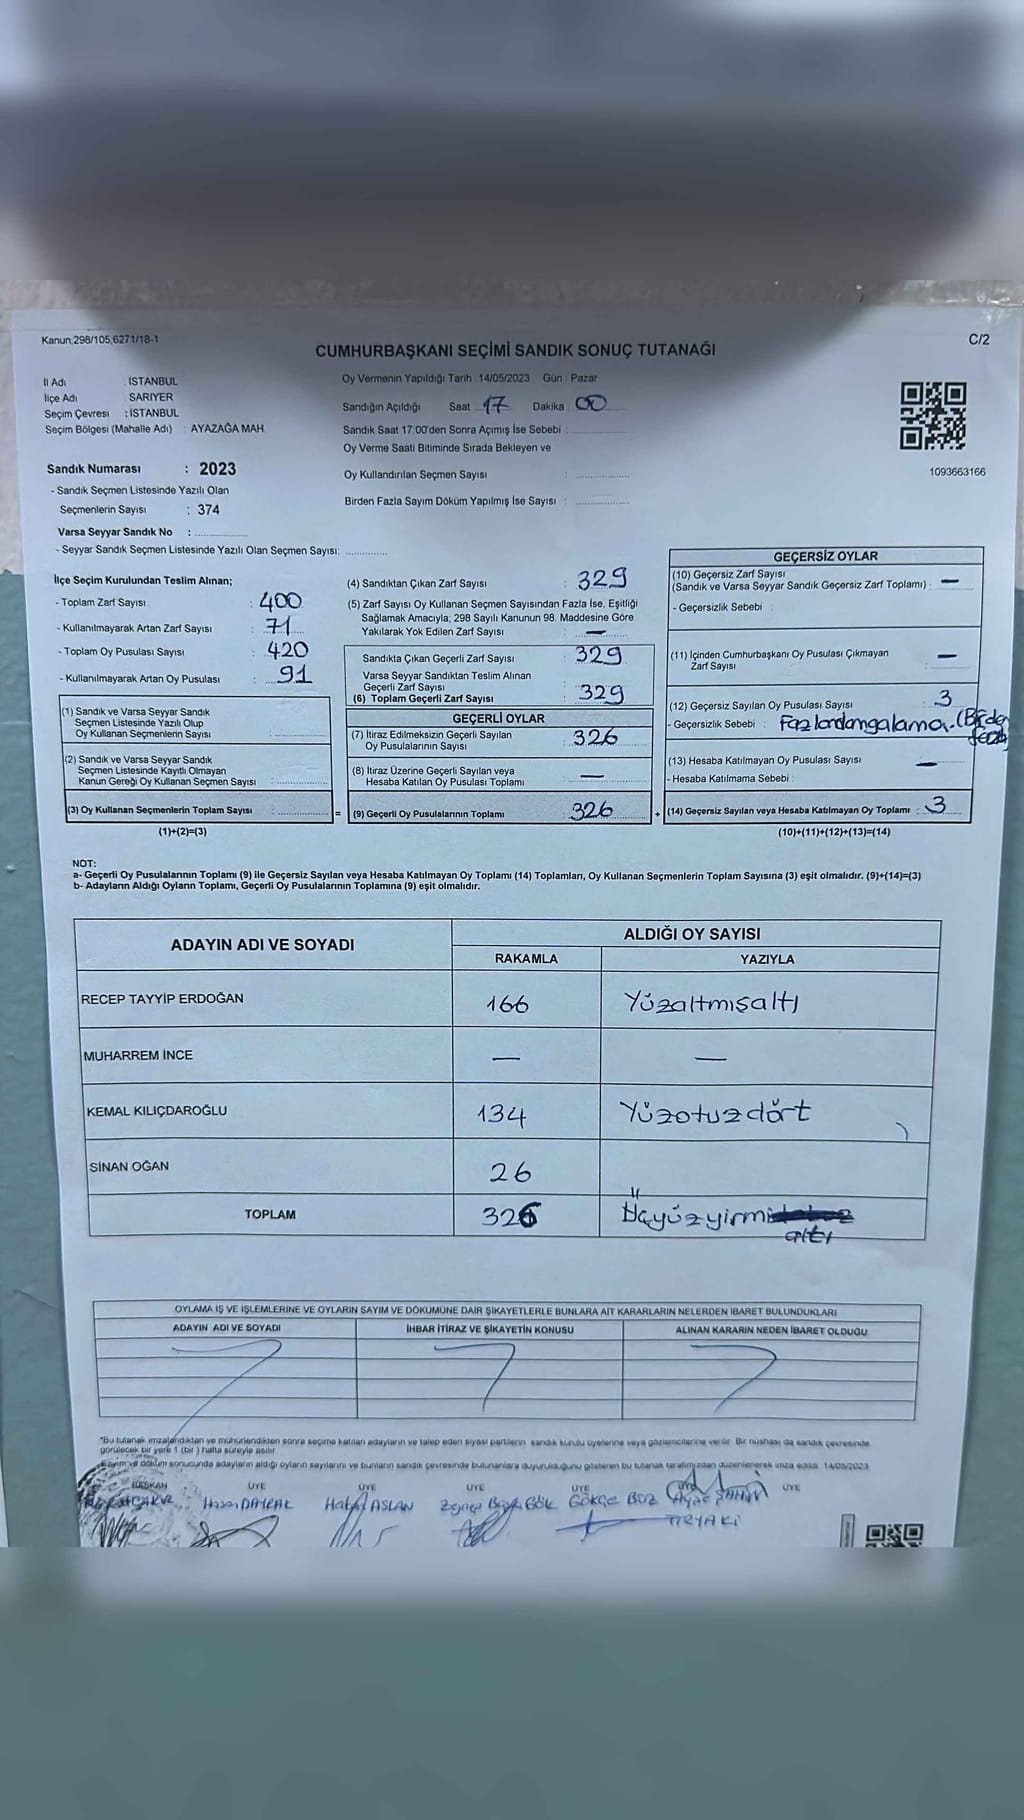 Kanun;298/105,6271/18-1
C/2
CUMHURBAŞKANI SEÇİMİ SANDIK SONUÇ TUTANAĞI
İl Adı : İSTANBUL
İlçe Adı : SARIYER
Seçim Çevresi : İSTANBUL
Seçim Bölgesi (Mahalle Adı) : AYAZAĞA MAH.
Oy Vermenin Yapıldığı Tarih : 14/05/2023 Gün : Pazar
Sandığın Açıldığı Saat : 17 Dakika : 00
Sandık Saat 17:00'den Sonra Açımış İse Sebebi :
Oy Verme Saati Bitiminde Sırada Bekleyen ve
Oy Kullandırılan Seçmen Sayısı :
Birden Fazla Sayım Döküm Yapılmış İse Sayısı :
1093663166
Sandık Numarası : 2023
- Sandık Seçmen Listesinde Yazılı Olan
Seçmenlerin Sayısı : 374
Varsa Seyyar Sandık No :
- Seyyar Sandık Seçmen Listesinde Yazılı Olan Seçmen Sayısı:
İlçe Seçim Kurulundan Teslim Alınan;
- Toplam Zarf Sayısı : 400
- Kullanılmayarak Artan Zarf Sayısı : 71
- Toplam Oy Pusulası Sayısı : 420
- Kullanılmayarak Artan Oy Pusulası : 91
(1) Sandık ve Varsa Seyyar Sandık
Seçmen Listesinde Yazılı Olup
Oy Kullanan Seçmenlerin Sayısı :
(2) Sandık ve Varsa Seyyar Sandık
Seçmen Listesinde Kayıtlı Olmayan
Kanun Gereği Oy Kullanan Seçmen Sayısı :
(3) Oy Kullanan Seçmenlerin Toplam Sayısı :
(1)+(2)=(3)
(4) Sandıktan Çıkan Zarf Sayısı : 329
(5) Zarf Sayısı Oy Kullanan Seçmen Sayısından Fazla İse, Eşitliği
Sağlamak Amacıyla, 298 Sayılı Kanunun 98. Maddesine Göre
Yakılarak Yok Edilen Zarf Sayısı : —
Sandıkta Çıkan Geçerli Zarf Sayısı : 329
Varsa Seyyar Sandıktan Teslim Alınan
Geçerli Zarf Sayısı :
(6) Toplam Geçerli Zarf Sayısı : 329
GEÇERLİ OYLAR
(7) İtiraz Edilmeksizin Geçerli Sayılan
Oy Pusulalarının Sayısı : 326
(8) İtiraz Üzerine Geçerli Sayılan veya
Hesaba Katılan Oy Pusulası Toplamı : —
= (9) Geçerli Oy Pusulalarının Toplamı : 326
GEÇERSİZ OYLAR
(10) Geçersiz Zarf Sayısı
(Sandık ve Varsa Seyyar Sandık Geçersiz Zarf Toplamı) : —
- Geçersizlik Sebebi :
(11) İçinden Cumhurbaşkanı Oy Pusulası Çıkmayan
Zarf Sayısı : —
(12) Geçersiz Sayılan Oy Pusulası Sayısı : 3
- Geçersizlik Sebebi : Fazlandangalama. (Birden
fazla
(13) Hesaba Katılmayan Oy Pusulası Sayısı : —
- Hesaba Katılmama Sebebi :
+ (14) Geçersiz Sayılan veya Hesaba Katılmayan Oy Toplamı : 3
(10)+(11)+(12)+(13)=(14)
NOT:
a- Geçerli Oy Pusulalarının Toplamı (9) ile Geçersiz Sayılan veya Hesaba Katılmayan Oy Toplamı (14) Toplamları, Oy Kullanan Seçmenlerin Toplam Sayısına (3) eşit olmalıdır. (9)+(14)=(3)
b- Adayların Aldığı Oyların Toplamı, Geçerli Oy Pusulalarının Toplamına (9) eşit olmalıdır.
ADAYIN ADI VE SOYADI
ALDIĞI OY SAYISI
RAKAMLA YAZIYLA
RECEP TAYYİP ERDOĞAN 166 Yüzaltmışaltı
MUHARREM İNCE — —
KEMAL KILIÇDAROĞLU 134 Yüzotuzdört
SİNAN OĞAN 26
TOPLAM 326 Üçyüzyirmi
altı
OYLAMA İŞ VE İŞLEMLERİNE VE OYLARIN SAYIM VE DÖKÜMÜNE DAİR ŞİKAYETLERLE BUNLARA AİT KARARLARIN NELERDEN İBARET BULUNDUKLARI
ADAYIN ADI VE SOYADI İHBAR İTİRAZ VE ŞİKAYETİN KONUSU ALINAN KARARIN NEDEN İBARET OLDUĞU
"Bu tutanak imzalandıktan ve mühürlendikten sonra seçime katılan adayların ve talep eden siyasi partilerin sandık kurulu üyelerine veya gözlemcilerine verilir. Bir nüshası da sandık çevresinde
görülecek bir yere 1 (bir) hafta süreyle asılır.
Sayım ve döküm sonucunda adayların aldığı oyların sayılarını ve bunların sandık çevresinde bulunanlara duyurulduğunu gösteren bu tutanak tarafımızdan düzenlenerek imza edildi. 14/05/2023
BAŞKAN ÜYE ÜYE ÜYE ÜYE ÜYE ÜYE
Hasan ASLAN Zeynep GÖK GÖKÇE BOZ Ayşe ŞAHİN
TİRYAKİ